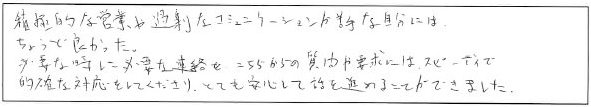 積極的な営業や過剰なコミュニケーションが苦手な自分には
ちょうど良かった。
必要な時に必要な連絡を、こちらからの質問や要求には、スピーディで
的確な対応をしてくださり、とても安心して話を進めることができました。